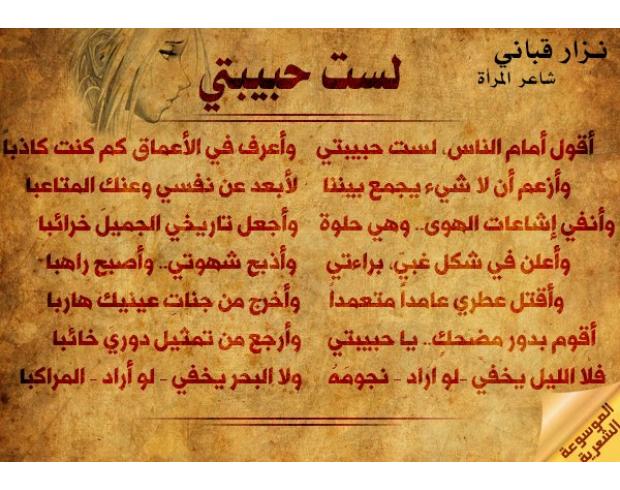 نزار قباني
شاعر المرأة
لست حبيبتي
أقول أمام الناس، لست حبيبتي وأعرف في الأعماق كم كنت كاذباً
وأزعم أن لا شيء يجمع بيننا لأبعد عن نفسي وعنك المتاعبا
وأنفي إشاعات الهوى.. وهي حلوة وأجعل تاريخي الجميلَ خرائبا
وأعلن في شكل غبيّ، براءتي وأذبح شهوتي.. وأصبح راهبا
وأقتل عطري عامداً متعمداً وأخرج من جنات عينيك هاربا
أقوم بدور مضحك.. يا حبيبتي وأرجع من تمثيل دوري خائبا
فلا الليل يخفي -لو اراد - نجومَهُ ولا البحر يخفي - لو أراد - المراكبا
الموسوعة
الشعرية